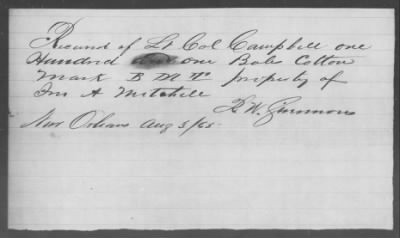 Received of Lt Col Campbell one
Hundred one Bale Cotton
Mark B M property of
Jno A Mitchell
W.
New Orleans Aug 5/65